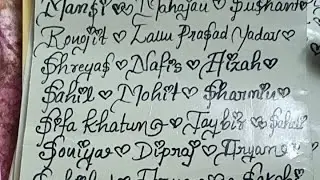 Mansi ♡ Mahajau ♡ Susham
Ronojit ♡ Lallu Prasad Yadav ♡
Shreyas ♡ Nafis ♡ Hizah
Sahil ♡ Mohit ♡ Sharmin
Sifa Khatun ♡ Taybir ♡ Sahil
Soniya ♡ Dipraj ♡ Aryan